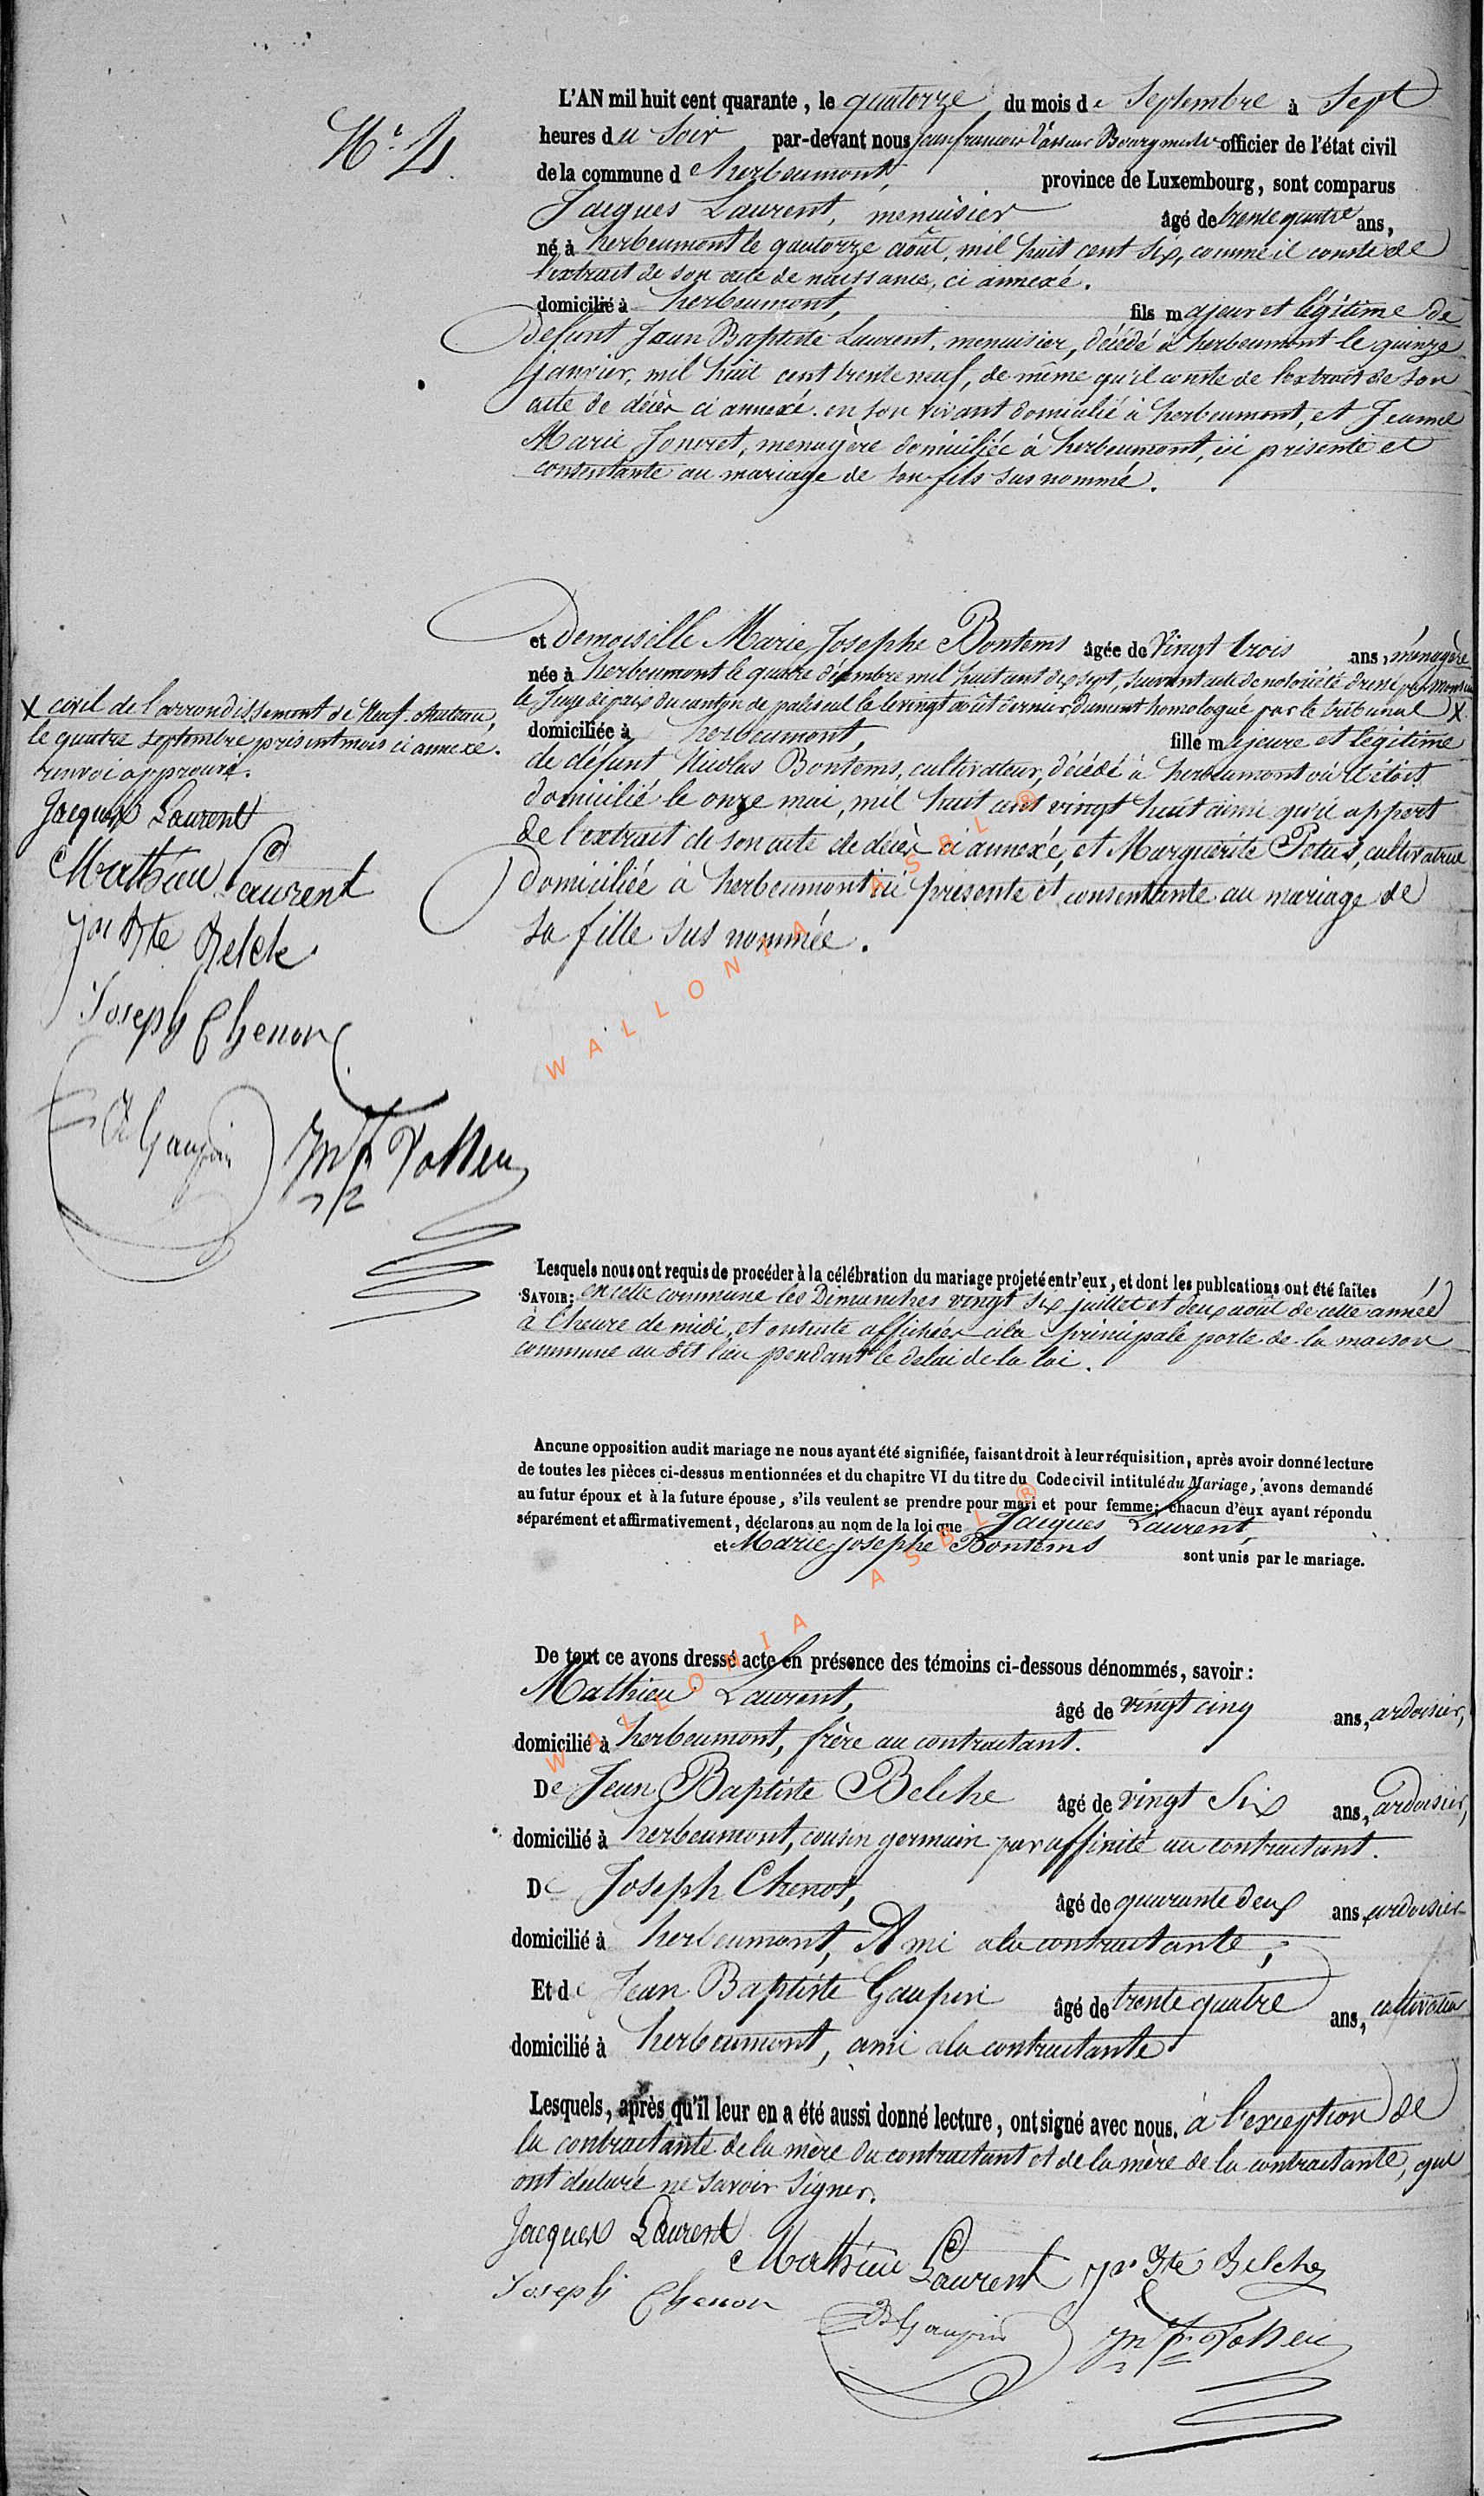 N.º 4.
L'AN mil huit cent quarante, le quatorze du mois de Septembre à Sept
heures du Soir par-devant nous jean francois Bourgmestre officier de l'état civil
de la commune d'herbeumont, province de Luxembourg, sont comparus
Jacques Laurent, menuisier âgé de trente quatre ans,
né à herbeumont le quatorze août, mil huit cent six, comme il conste de
l'extrait de son acte de naissance, ci annexé.
domicilié à herbeumont, fils majeur et légitime de
défunt Jean Baptiste Laurent, menuisier, décédé à herbeumont le quinze
janvier, mil huit cent trente neuf, de même qu'il conste de l'extrait de son
acte de décès ci annexé. en son vivant domicilié à herbeumont, et Jeanne
Marie Joncret, menagère domiciliée à herbeumont, ici présente et
consentante au mariage de son fils sus nommé.
et Demoiselle Marie Josephe Bontems âgée de Vingt trois ans, ménagère
née à herbeumont le quatre décembre mil huit cent dix sept, suivant acte de notoriété dressé par Monsieur
le Juge de paix du canton de paliseul le vingt août dernier, dument homologué par le tribunal X
X civil de l'arrondissement de Neuf-chateau,
le quatre septembre présent mois ci annexé.
renvoi approuvé.
Jacques Laurent
Mathieu Laurent
Jn Bte Belche
Joseph Chenot
Gaupin
domiciliée à herbeumont, fille majeure et légitime
de défunt Nicolas Bontems, cultivateur, décédé à herbeumont où il étoit
domicilié le onze mai, mil huit cent vingt huit ainsi qu'il appert
de l'extrait de son acte de décès ci annexé, et Marguerite Potus, cultivatrice
domiciliée à herbeumont ici présente et consentante au mariage de
sa fille sus nommée.
WALLONIA ASBL ®
Lesquels nous ont requis de procéder à la célébration du mariage projeté entr'eux, et dont les publcations ont été faites
SAVOIR: en cette commune les Dimanches vingt six juillet et deux août de cette année
à l'heure de midi, et ensuite affichées à la principale porte de la maison
commune au dit lieu pendant le delai de la loi.
Aucune opposition audit mariage ne nous ayant été signifiée, faisant droit à leur réquisition, après avoir donné lecture
de toutes les pièces ci-dessus mentionnées et du chapitre VI du titre du Code civil intitulé du Mariage, avons demandé
au futur époux et à la future épouse, s'ils veulent se prendre pour mari et pour femme; chacun d'eux ayant répondu
séparément et affirmativement, déclarons au nom de la loi que Jacques Laurent,
et Marie josephe Bontems sont unis par le mariage.
WALLONIA ASBL ®
De tout ce avons dressé acte en présence des témoins ci-dessous dénommés, savoir:
Mathieu Laurent, âgé de vingt cinq ans, ardoisier,
domicilié à herbeumont, frère au contractant.
De Jean Baptiste Belche âgé de vingt Six ans, ardoisier,
domicilié à herbeumont, cousin germain par affinité au contractant.
De Joseph Chenot, âgé de quarante deux ans, ardoisier
domicilié à herbeumont, Ami à la contractante,
Et de Jean Baptiste Gaupin âgé de trente quatre ans, cultivateur
domicilié à herbeumont, ami à la contractante
Lesquels, après qu'il leur en a été aussi donné lecture, ont signé avec nous. à l'exception de
la contractante de la mère du contractant et de la mère de la contractante, qui
ont déclaré ne savoir signer.
Jacques Laurent
Mathieu Laurent Jn Bte Belche
Joseph Chenot
Gaupin